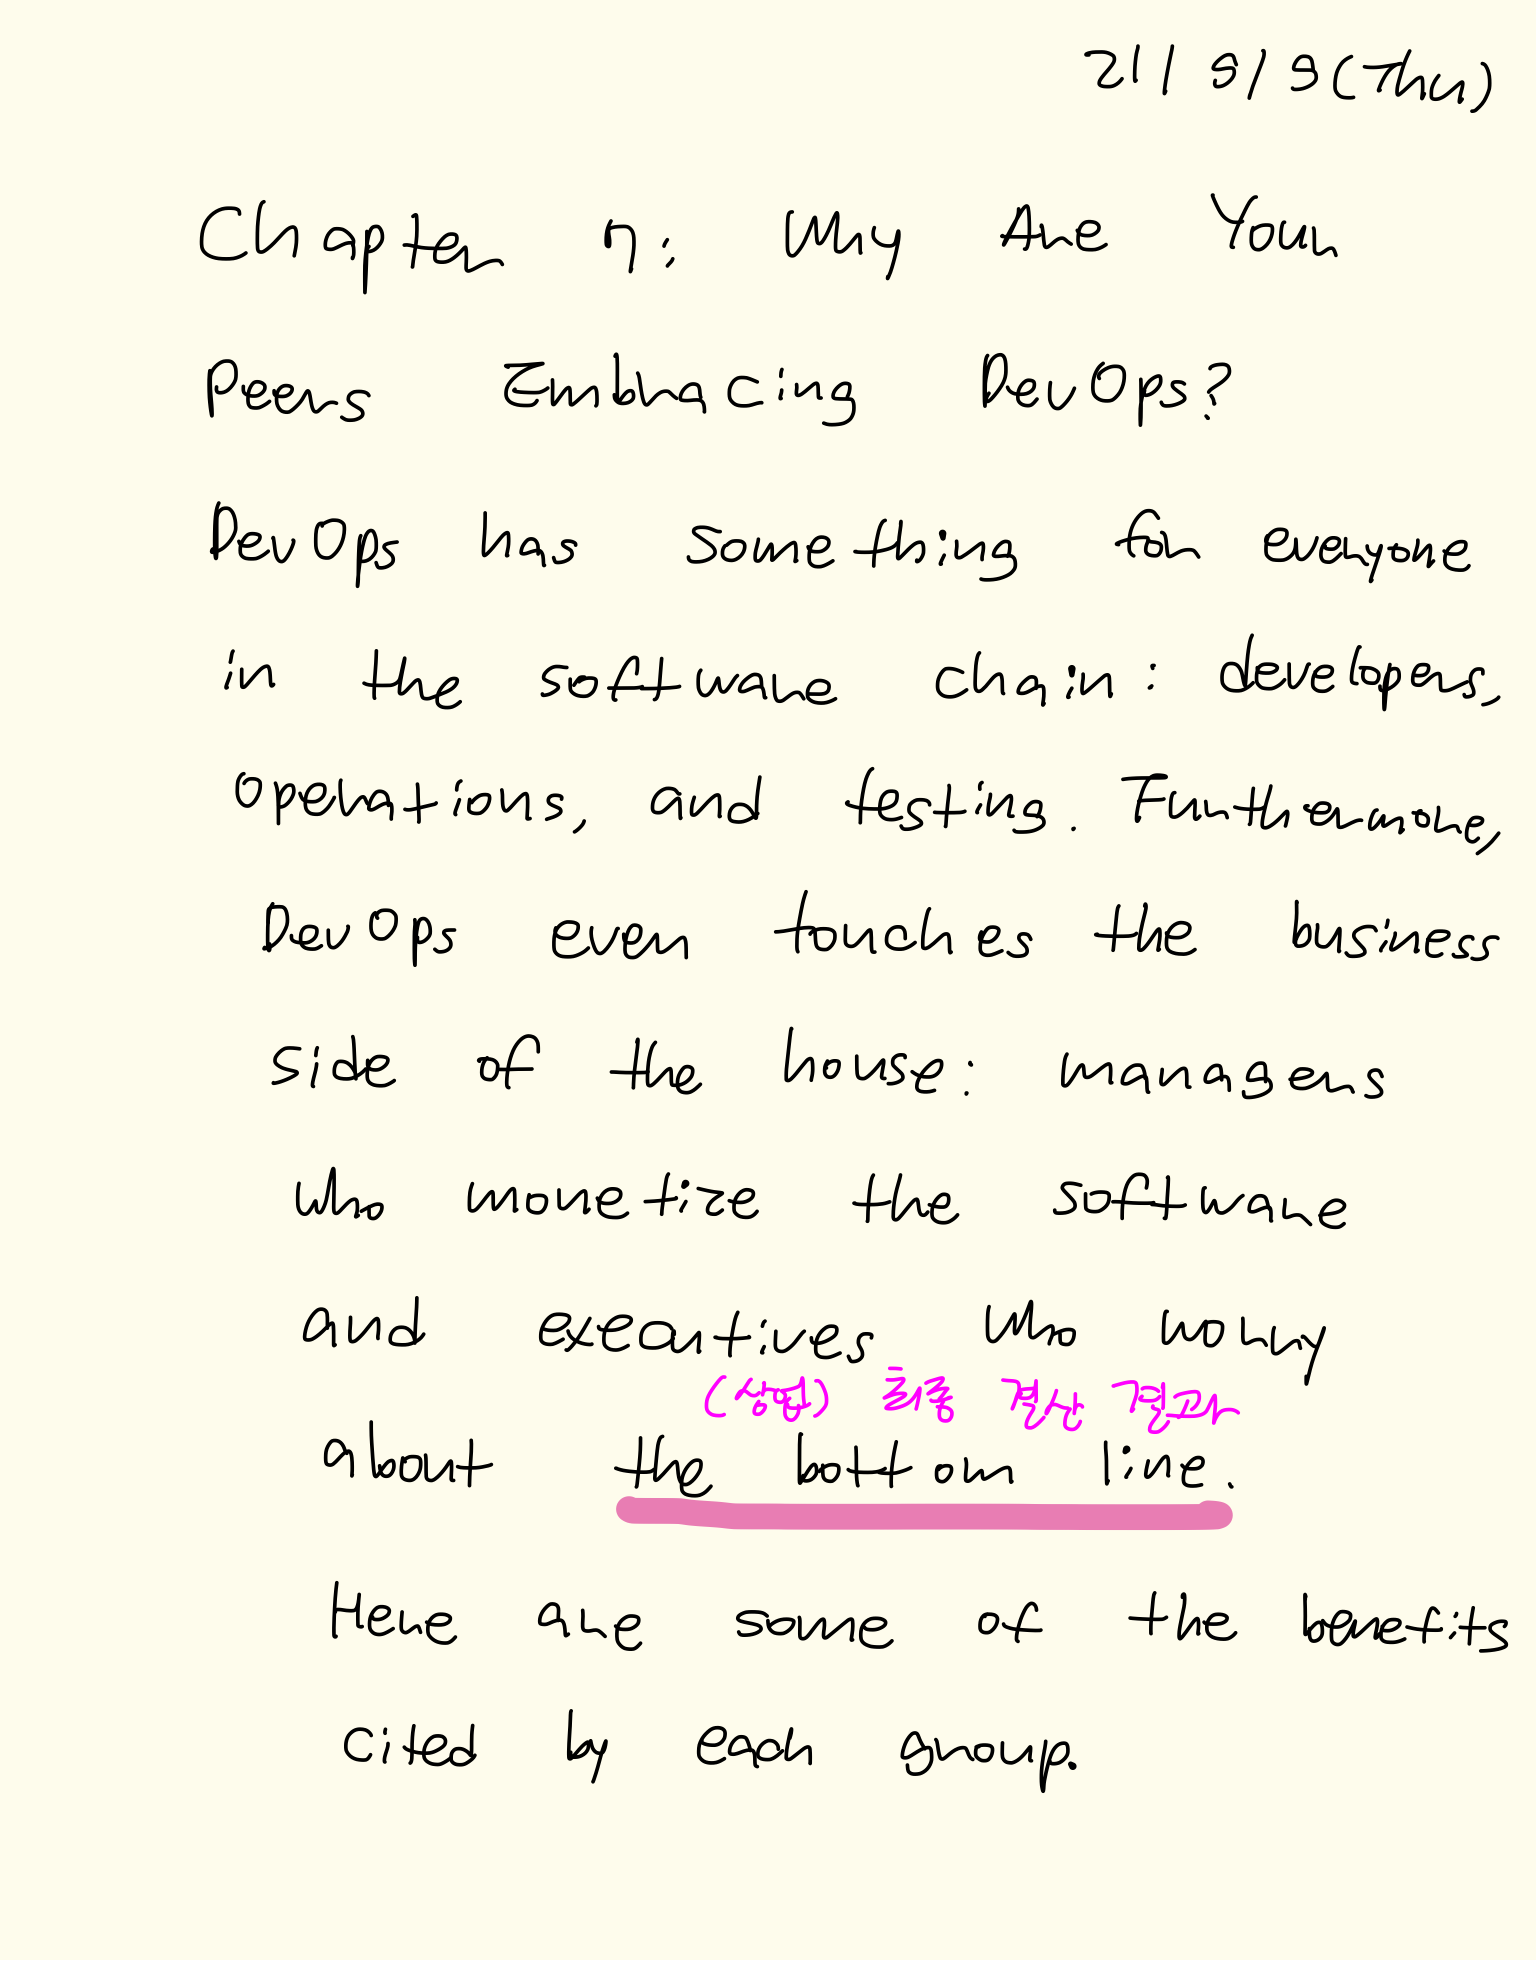 21/9/9(Thu)
Chapter 7: Why Are Your
Peers Embracing DevOps?
DevOps has something for everyone
in the software chain: developers,
operations, and testing. Furthermore,
DevOps even touches the business
side of the house: managers
who monetize the software
and executives who worry
(상업) 최종 결산 결과
about the bottom line.
Here are some of the benefits
cited by each group.